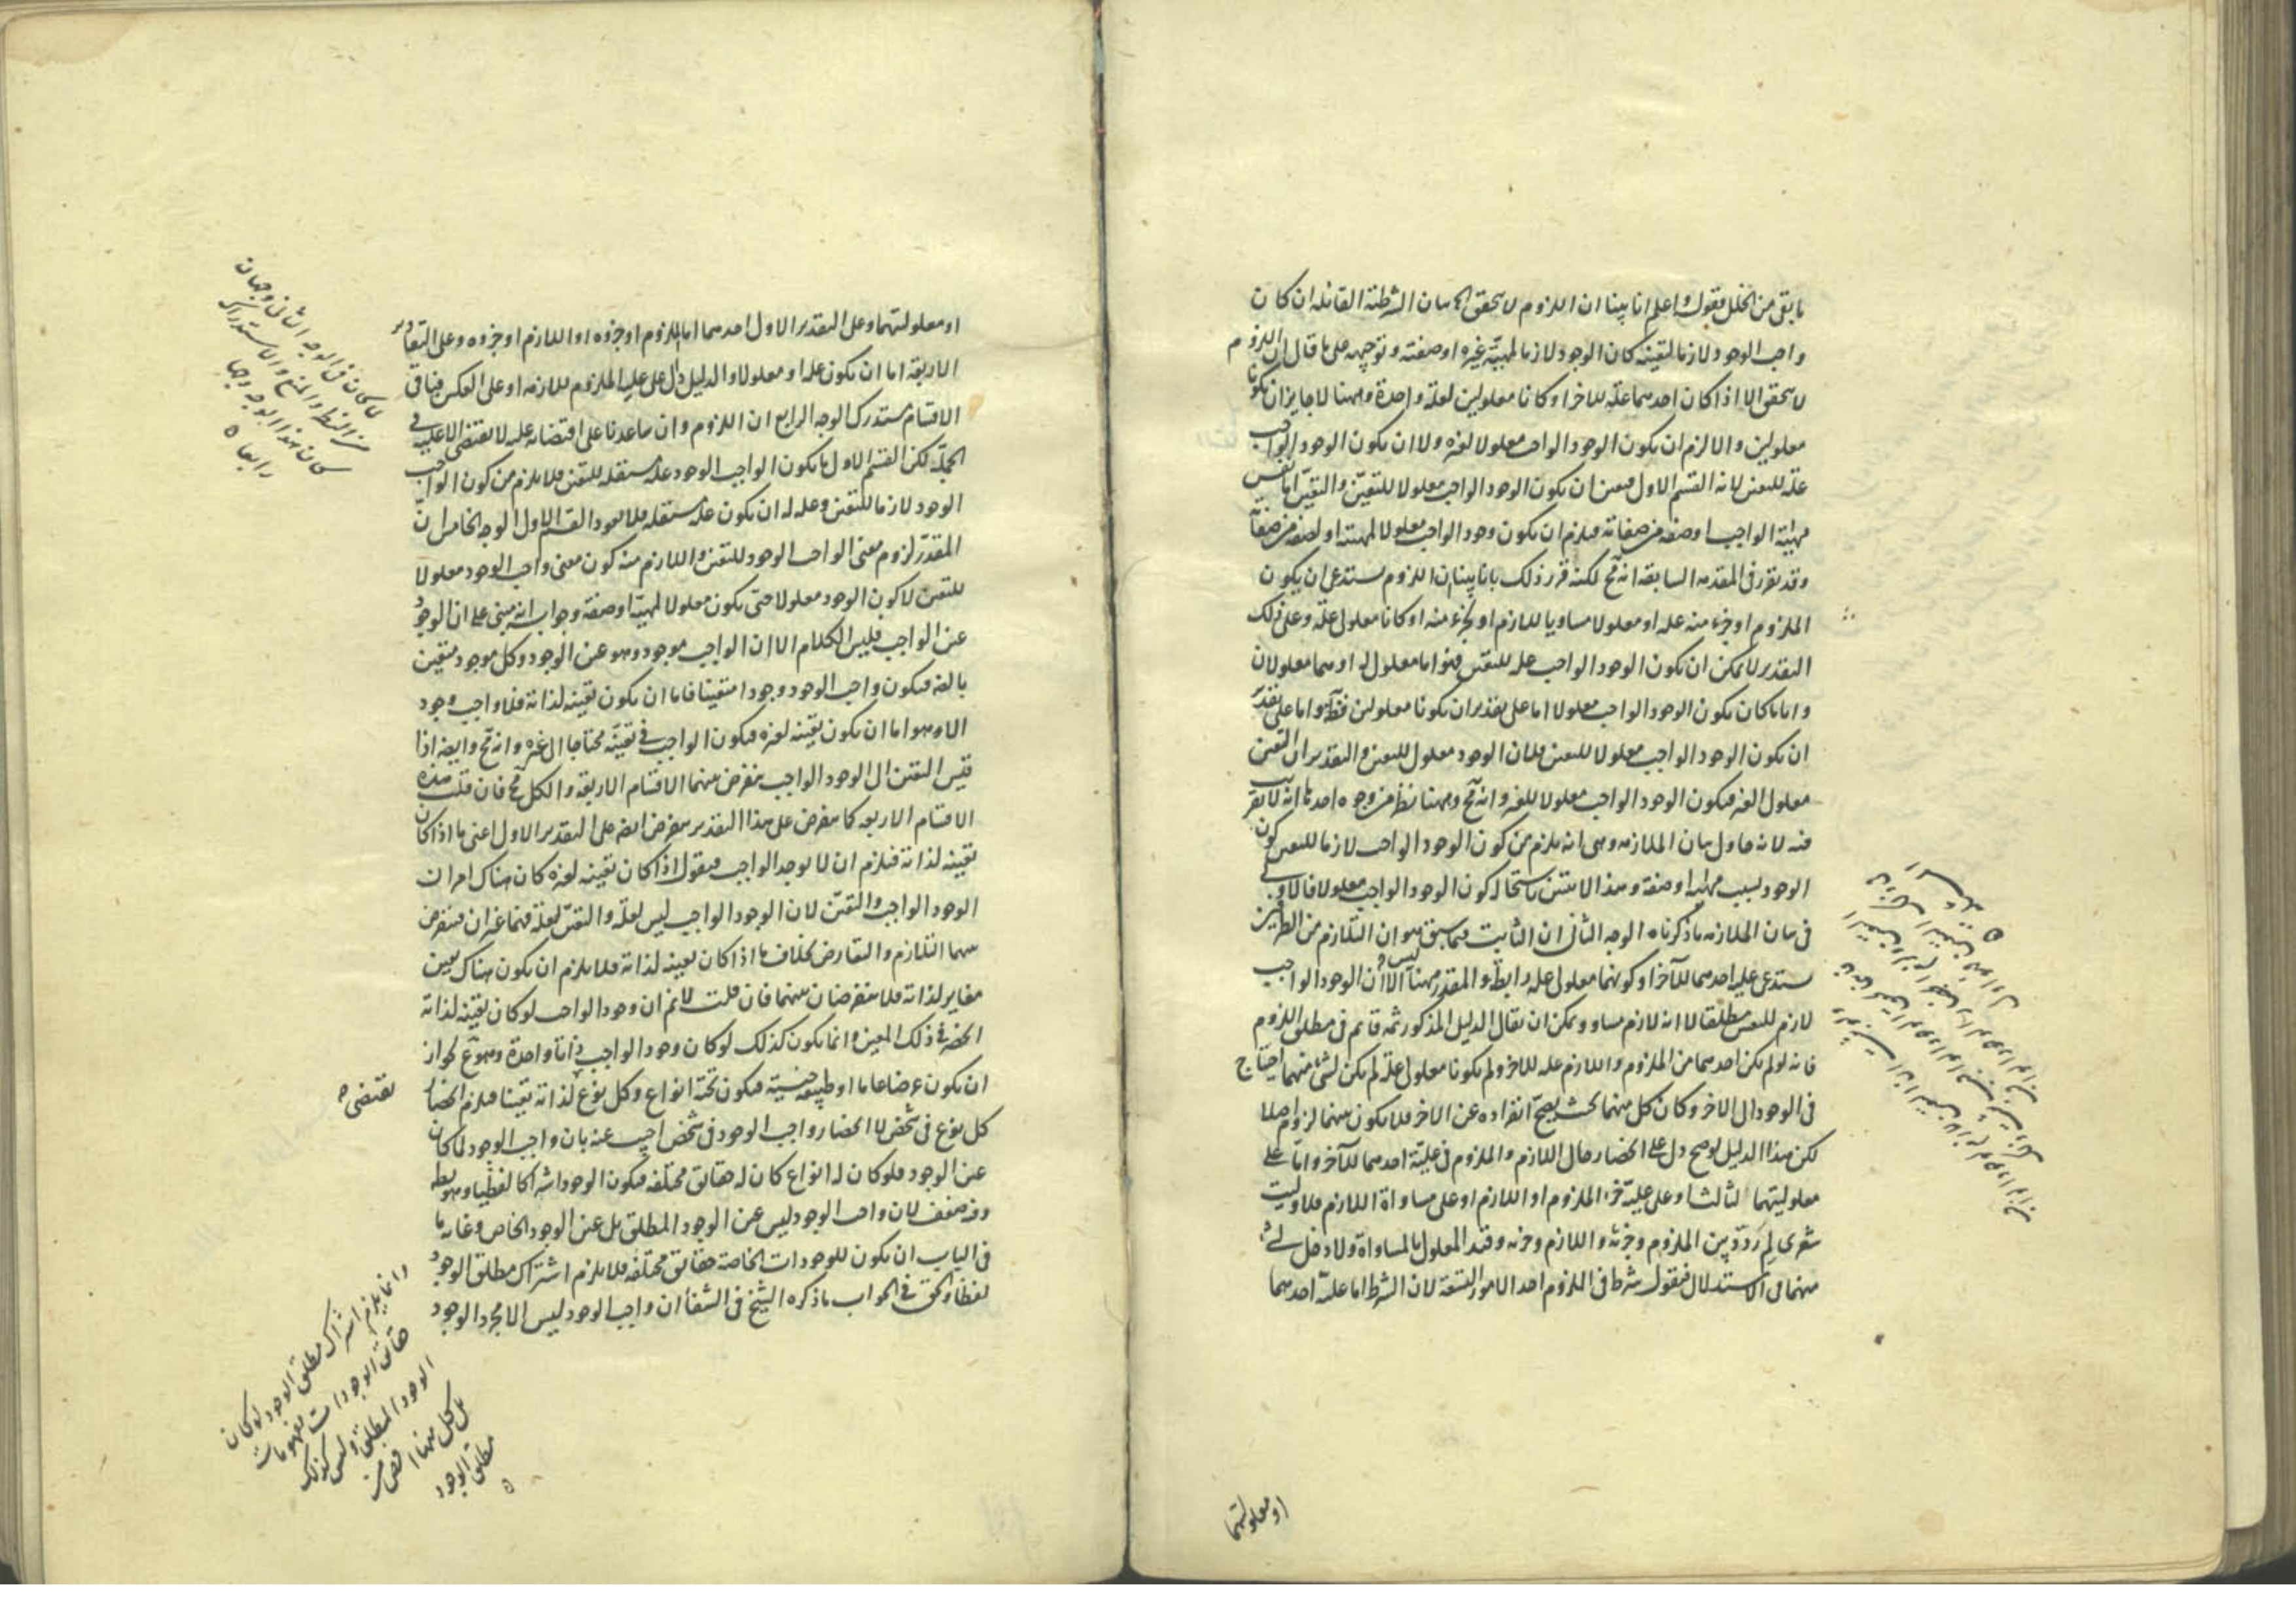 ما بقى من الخلل فنقول واعلم انا بينا ان اللزوم لا يتحقق الا بيان الشرطية القائلة ان كان
واجب الوجود لازما لتعينه كان الوجود لازما لمهيّة غيره او صفته وتوجيهه على ما قال ان اللزوم
لا يتحقق الا اذا كان احدهما علة للاخر او كانا معلولين لعلة واحدة وههنا لا جايز ان يكونا
معلولين والا لزم ان يكون الوجود الواجب معلولا لغيره ولا ان يكون الوجود الواجب
علة للتعين لانه القسم الاول فتعين ان يكون الوجود الواجب معلولا للتعيّن والتعيّن اما نفس
مهيّة الواجب او صفة من صفاته فيلزم ان يكون وجود الواجب معلولا لمهيته او لصفة من صفاته
وقد تقرر فى المقدمة السابقة انه مح لكنه قرر ذلك بانا بينا ان اللزوم يستدعى ان يكون
الملزوم او جزء منه علة او معلولا مساويا لللازم او لجزء منه او كانا معلولى علّة وعلى ذلك
التقدير لا يمكن ان يكون الوجود الواجب علة للتعين فهو اما معلول له او هما معلولان
وايا ما كان يكون الوجود الواجب معلولا اما على تقدير ان يكونا معلولين فظ واما على تقدير
ان يكون الوجود الواجب معلولا للتعين فلان الوجود معلول للتعين والتقدير ان التعين
معلول الغير فيكون الوجود الواجب معلولا للغير وانه مح وههنا نظر من وجوه احدها انه لا تقريب
فيه لانه حاول بيان الملازمة وهى انه يلزم من كون الوجود الواجب لازما للتعين كون
الوجود بسبب مهية او صفة وهذا لا يتبين باستحالة كون الوجود الواجب معلولا فالاولى
فى بيان الملازمة ما ذكرناه الوجه الثانى ان الثابت فيما سبق هو ان التلازم من الطرفين
يستدعى علية احدهما للآخر او كونهما معلولى علة رابطة والمقدر ههنا ليس الا ان الوجود الواجب
لازم للتعين مطلقا لا انه لازم مساو ويمكن ان يقال الدليل المذكور ثمه قائم فى مطلق اللزوم
فانه لو لم يكن احدهما من الملزوم واللازم علة للاخر ولم يكونا معلولى علة لم يكن لشئ منهما احتياج
فى الوجود الى الاخر وكان كل منهما بحيث يصحّ انفراده عن الاخر فلا يكون بينهما لزوم اصلا
لكن هذا الدليل لو صح دل على انحصار حال اللازم والملزوم فى عليّة احدهما للآخر واما على
معلوليتهما لثالث او على عليّة جزء الملزوم او اللازم او على مساواة اللازم فلا وليت
شعرى لِمَ ردّد بين الملزوم وجزئه واللازم وجزئه وقيد المعلول بالمساواة ولا دخل لشئ
منهما فى الاستدلال فنقول شرطا فى اللزوم احد الامور التسعة لان الشرط اما عليّة احدهما
او معلوليتهما
او معلوليتهما وعلى التقدير الاول احدهما اما الملزوم او جزءه او اللازم او جزءه وعلى التقادير
الاربعة اما ان يكون علة او معلولا والدليل دال على علية الملزوم لللازم او على العكس فباقى
الاقسام مستدرك الوجه الرابع ان اللزوم وان ساعدنا على اقتضائه علية لا يقتضى الا علية فى
الجملة لكن القسم الاول ما يكون الواجب الوجود علة مستقلة للتعين فلا يلزم من كون الواجب
الوجود لازما للتعين وعلة له ان يكون علة مستقلة فلا يعود القسم الاول الوجه الخامس ان
المقدّر لزوم معنى الواجب الوجود للتعين واللازم منه كون معنى واجب الوجود معلولا
للتعين لا كون الوجود معلولا حتى يكون معلولا لمهيّة او صفة وجوابه انه مبنى على ان الوجود
عين الواجب فليس الكلام الا ان الواجب موجود وهو عين الوجود وكل موجود متعين
بالغير فيكون واجب الوجود وجودا متعينا فاما ان يكون تعينه لذاته فلا واجب وجود
الا هو واما ان يكون تعينه لغيره فيكون الواجب فى تعينه محتاجا الى غيره وانه مح وايضا اذا
قيس التعين الى الوجود الواجب ينفرض بينهما الاقسام الاربعة والكل مح فان قلت هذه
الاقسام الاربعة كما ينفرض على هذا التقدير ينفرض ايضا على التقدير الاول اعنى ما اذا كان
تعينه لذاته فيلزم ان لا يوجد الواجب فنقول اذا كان تعينه لغيره كان هناك امران
الوجود الواجب والتعيّن لان الوجود الواجب ليس لعلّة والتعيّن لعلّة فهما غيران فينفرض
بينهما التلازم والتعارض بخلاف ما اذا كان تعينه لذاته فلا يلزم ان يكون هناك تعين
مغاير لذاته فلا ينفرضان بينهما فان قلت لا نم ان وجود الواجب لو كان تعينه لذاته
انحصر فى ذلك المعين وانما يكون كذلك لو كان وجود الواجب ذاتا واحدة وهو مع لجواز
ان يكون عرضا عاما او طبيعة جنسية فيكون تحته انواع وكل نوع لذاته تعينا فيلزم انحصار
يقتضى
كل نوع فى شخص لا انحصار واجب الوجود فى شخص اجيب عنه بان واجب الوجود لما كان
عين الوجود فلو كان له انواع كان له حقائق مختلفة فيكون الوجود اشتراكا لفظيا وهو بط
وفيه ضعف لان واجب الوجود ليس عين الوجود المطلق بل عين الوجود الخاص وغاية ما
فى الباب ان يكون للوجودات الخاصة حقائق مختلفة فلا يلزم اشتراك مطلق الوجود
لفظا والحق فى الجواب ما ذكره الشيخ فى الشفا ان واجب الوجود ليس الا مجرد الوجود
لما كان فى الوجه الثانى وجهان
من النظر والمنع والاستدراك
كان هذا الوجه وجها
رابعا
وانما يلزم اشتراك مطلق الوجود لو كان
حقائق الوجودات مفهومات
الوجود المطلق وليس كذلك
بل كل منها اخص من
مطلق الوجود